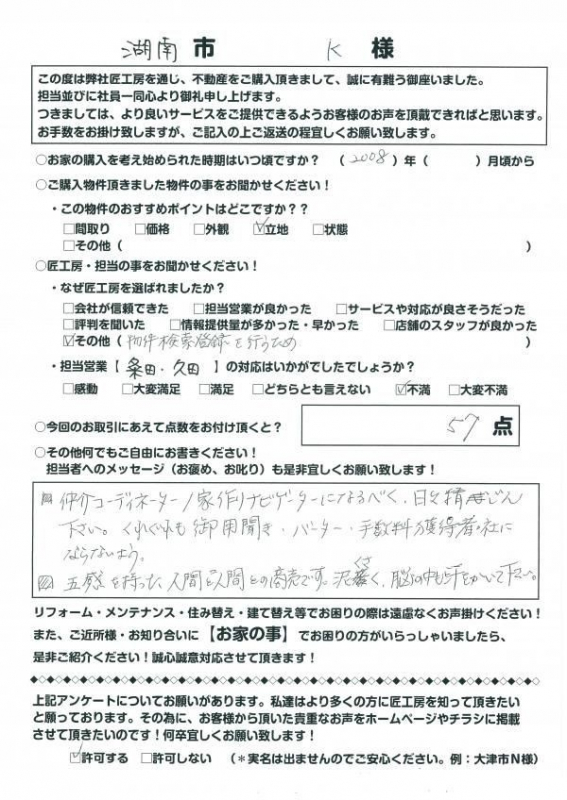 湖南市 K 様
この度は弊社匠工房を通じ、不動産をご購入頂きまして、誠に有難う御座いました。
担当並びに社員一同心より御礼申し上げます。
つきましては、より良いサービスをご提供できるようお客様のお声を頂戴できればと思います。
お手数をお掛け致しますが、ご記入の上ご返送の程宜しくお願い致します。
○お家の購入を考え始められた時期はいつ頃ですか？ （2008）年（ ）月頃から
○ご購入物件頂きました物件の事をお聞かせください！
・この物件のおすすめポイントはどこですか？？
□間取り □価格 □外観 ☑立地 □状態
□その他（ ）
○匠工房・担当の事をお聞かせください！
・なぜ匠工房を選ばれましたか？
□会社が信頼できた □担当営業が良かった □サービスや対応が良さそうだった
□評判を聞いた □情報提供量が多かった・早かった □店舗のスタッフが良かった
☑その他（物件検索登録を行うため ）
・担当営業【桑田・久田】の対応はいかがでしたでしょうか？
□感動 □大変満足 □満足 □どちらとも言えない ☑不満 □大変不満
○今回のお取引にあえて点数をお付け頂くと？ 57 点
○その他何でもご自由にお書きください！
担当者へのメッセージ（お褒め、お叱り）も是非宜しくお願い致します！
仲介コーディネーター/家作りナビゲーターになるべく、日々精進
下さい。くれぐれも御用聞き・バーター・手数料獲得者・社に
ならないよう。
五感を持った人間と人間との商売です。泥臭く、脳の中も汗をかいて下さい。
リフォーム・メンテナンス・住み替え・建て替え等でお困りの際は遠慮なくお声掛けください！
また、ご近所様・お知り合いに【お家の事】でお困りの方がいらっしゃいましたら、
是非ご紹介ください！誠心誠意対応させて頂きます！
上記アンケートについてお願いがあります。私達はより多くの方に匠工房を知って頂きたい
と願っております。その為に、お客様から頂いた貴重なお声をホームページやチラシに掲載
させて頂きたいのです！何卒宜しくお願い致します！
☑許可する □許可しない （＊実名は出ませんのでご安心ください。例：大津市Ｎ様）